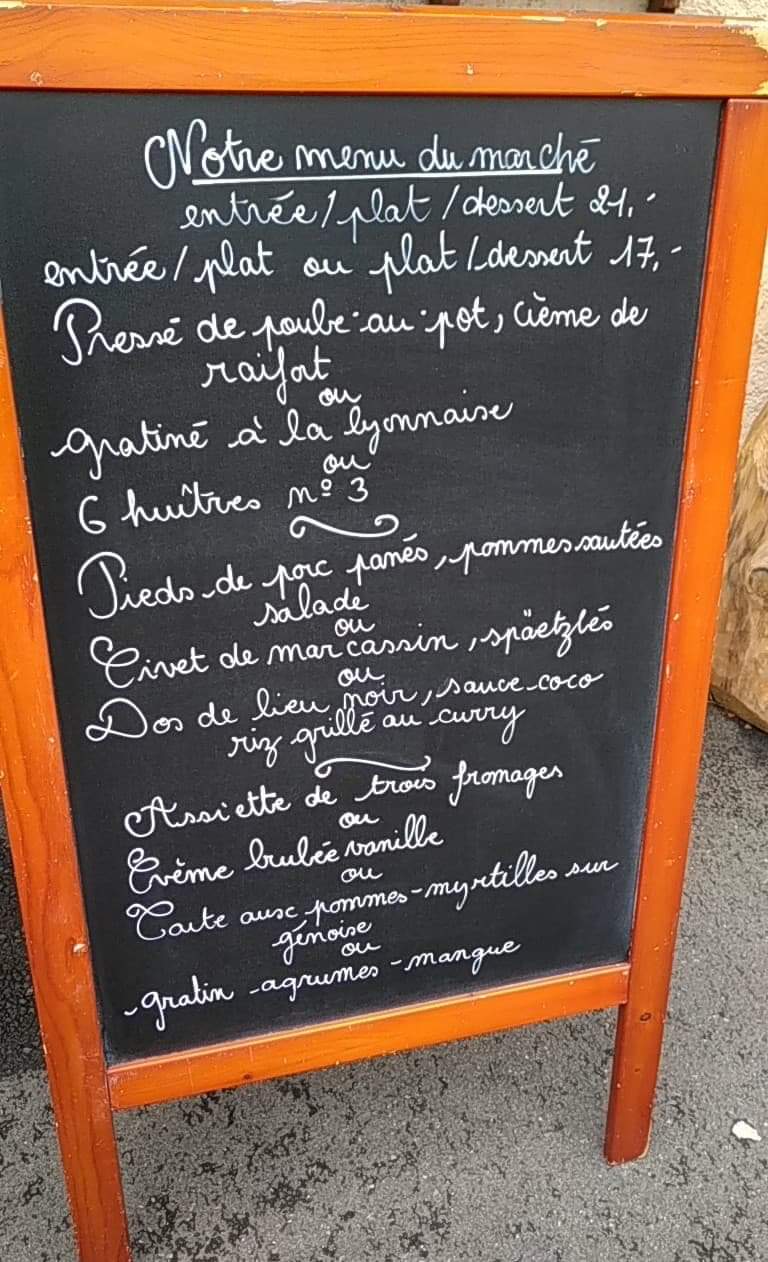 Notre menu du marché
entrée / plat / dessert 21,-
entrée / plat ou plat / dessert 17,-
Pressé de poule-au-pot, crème de
raifort
ou
gratiné à la lyonnaise
ou
6 huîtres nº 3
Pieds de porc panés, pommes sautées
salade
ou
Civet de marcassin, späetzlés
ou
Dos de lieu noir, sauce coco
riz grillé au curry
Assiette de trois fromages
ou
Crème brulée vanille
ou
Tarte aux pommes-myrtilles sur
génoise
ou
gratin - agrumes - mangue